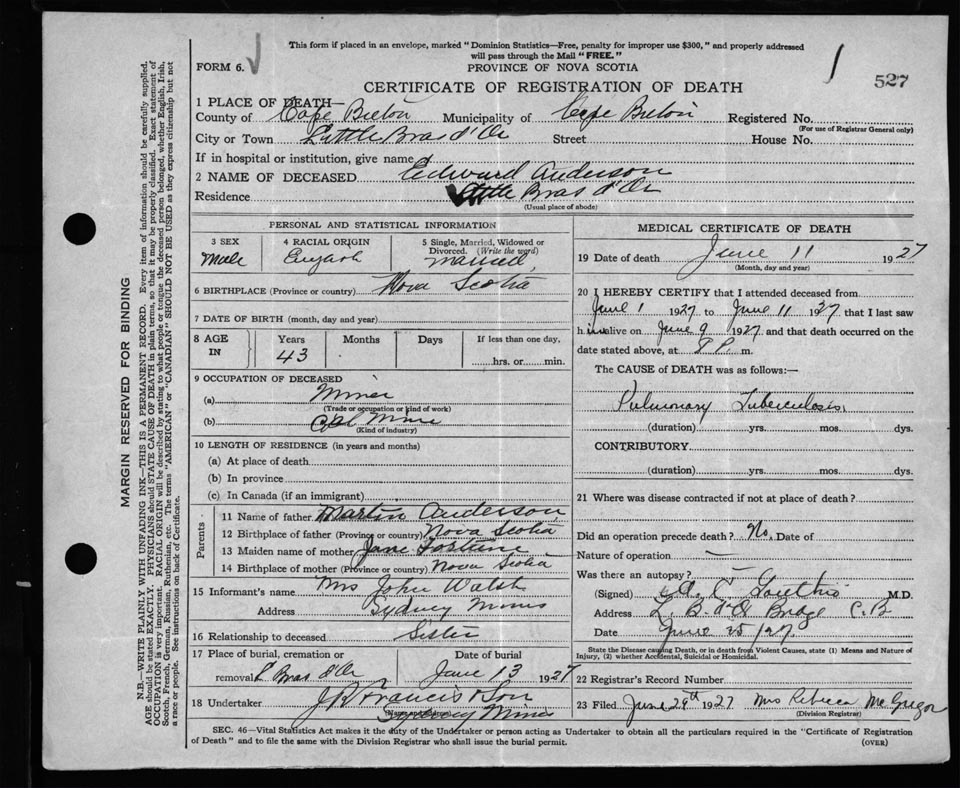 This form if placed in an envelope, marked "Dominion Statistics—Free, penalty for improper use $300," and properly addressed
will pass through the Mail "FREE."
FORM 6.
PROVINCE OF NOVA SCOTIA
527
CERTIFICATE OF REGISTRATION OF DEATH
1 PLACE OF DEATH—
County of Cape Breton Municipality of Cape Breton Registered No.
(For use of Registrar General only)
City or Town Little Bras d'Or Street House No.
If in hospital or institution, give name
2 NAME OF DECEASED Edward Anderson
Residence Little Bras d'Or
(Usual place of abode)
PERSONAL AND STATISTICAL INFORMATION
3 SEX
Male
4 RACIAL ORIGIN
English
5 Single, Married, Widowed or
Divorced. (Write the word)
Married
6 BIRTHPLACE (Province or country) Nova Scotia
7 DATE OF BIRTH (month, day and year)
8 AGE
IN
Years
43
Months
Days
If less than one day,
hrs. or min.
9 OCCUPATION OF DECEASED
(a) Miner
(Trade or occupation or kind of work)
(b) Coal Mine
(Kind of industry)
10 LENGTH OF RESIDENCE (in years and months)
(a) At place of death
(b) In province
(c) In Canada (if an immigrant)
Parents
11 Name of father Martin Anderson
12 Birthplace of father (Province or country) Nova Scotia
13 Maiden name of mother Jane
14 Birthplace of mother (Province or country) Nova Scotia
15 Informant's name Mrs John Walsh
Address Sydney Mines
16 Relationship to deceased Sister
17 Place of burial, cremation or
removal L Bras d'Or
Date of burial
June 13 1927
18 Undertaker Francis & Son
Sydney Mines
MEDICAL CERTIFICATE OF DEATH
19 Date of death June 11 1927
(Month, day and year)
20 I HEREBY CERTIFY that I attended deceased from
June 1 1927 to June 11 1927 that I last saw
him alive on June 9 1927 and that death occurred on the
date stated above, at P. m.
The CAUSE of DEATH was as follows:—
Pulmonary Tuberculosis
(duration) yrs. mos. dys.
CONTRIBUTORY
(duration) yrs. mos. dys.
21 Where was disease contracted if not at place of death?
Did an operation precede death? No. Date of
Nature of operation —
Was there an autopsy? —
(Signed) M.D.
Address L. B. d'Or Bridge C.B
Date June 25/27.
State the Disease causing Death, or in death from Violent Causes, state (1) Means and Nature of
Injury, (2) whether Accidental, Suicidal or Homicidal.
22 Registrar's Record Number
23 Filed June 29th 1927 Mrs Rebecca McGregor
(Division Registrar)
SEC. 46—Vital Statistics Act makes it the duty of the Undertaker or person acting as Undertaker to obtain all the particulars required in the "Certificate of Registration
of Death" and to file the same with the Division Registrar who shall issue the burial permit.
(OVER)
MARGIN RESERVED FOR BINDING
N.B.—WRITE PLAINLY WITH UNFADING INK—THIS IS A PERMANENT RECORD. Every item of information should be carefully supplied.
AGE should be stated EXACTLY. PHYSICIANS should STATE CAUSE OF DEATH in plain terms, so that it may be properly classified. Exact statement of
OCCUPATION is very important. RACIAL ORIGIN will be described by stating to what people or tongue the deceased person belonged, whether English, Irish,
Scotch, French, German, Russian, Ruthenian, etc. The terms "AMERICAN" or "CANADIAN" SHOULD NOT BE USED as they express citizenship but not
a race or people. See instructions on back of Certificate.